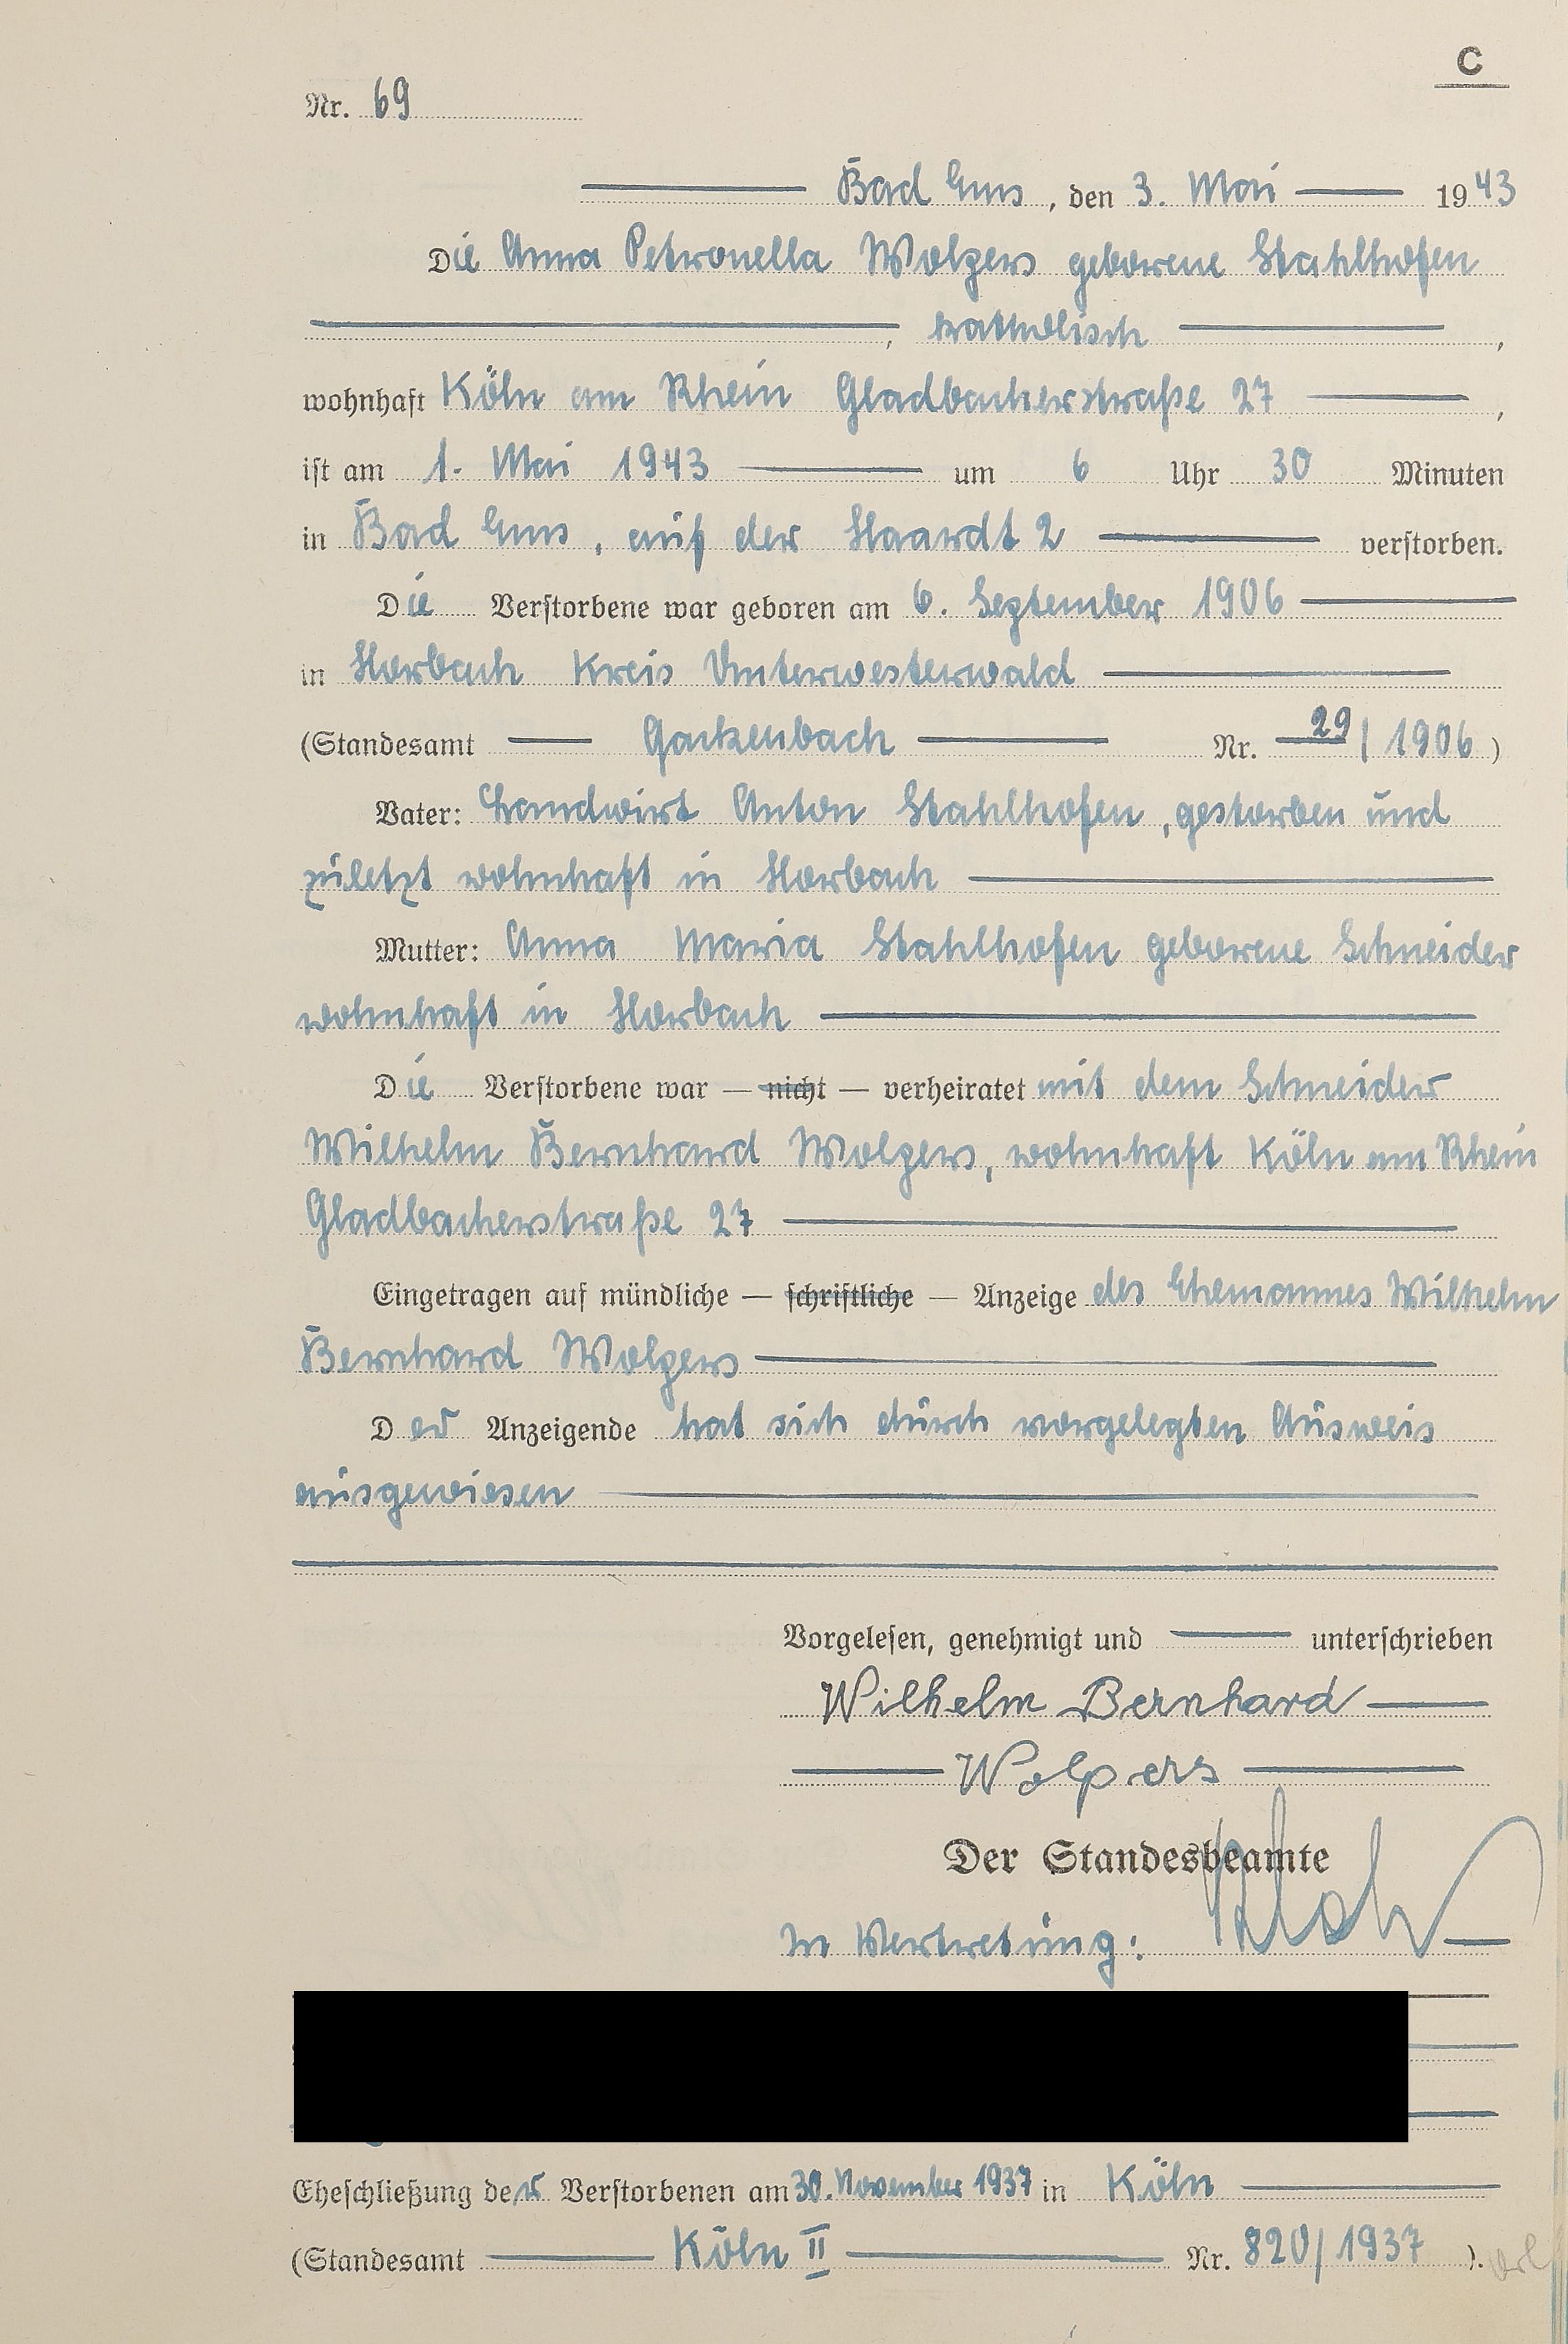 C
Nr. 69
Bad Ems, den 3. Mai 1943
Die Anna Petronella Wolpers geborene Stahlhofen
, katholisch ,
wohnhaft Köln am Rhein Gladbacherstraße 27 ,
ist am 1. Mai 1943 um 6 Uhr 30 Minuten
in Bad Ems, auf der Haardt 2 verstorben.
Die Verstorbene war geboren am 6. September 1906
in Horbach Kreis Unterwesterwald
(Standesamt Gackenbach Nr. 29/1906)
Vater: Landwirt Anton Stahlhofen, gestorben und
zuletzt wohnhaft in Horbach
Mutter: Anna Maria Stahlhofen geborene Schneider
wohnhaft in Horbach
Die Verstorbene war — nicht — verheiratet mit dem Schneider
Wilhelm Bernhard Wolpers, wohnhaft Köln am Rhein
Gladbacherstraße 27
Eingetragen auf mündliche — schriftliche — Anzeige des Ehemannes Wilhelm
Bernhard Wolpers
Der Anzeigende hat sich durch vorgelegten Ausweis
ausgewiesen
Vorgelesen, genehmigt und unterschrieben
Wilhelm Bernhard
Wolpers
Der Standesbeamte
In Vertretung:
Eheschließung der Verstorbenen am 30. November 1937 in Köln
(Standesamt Köln II Nr. 820/1937 ).